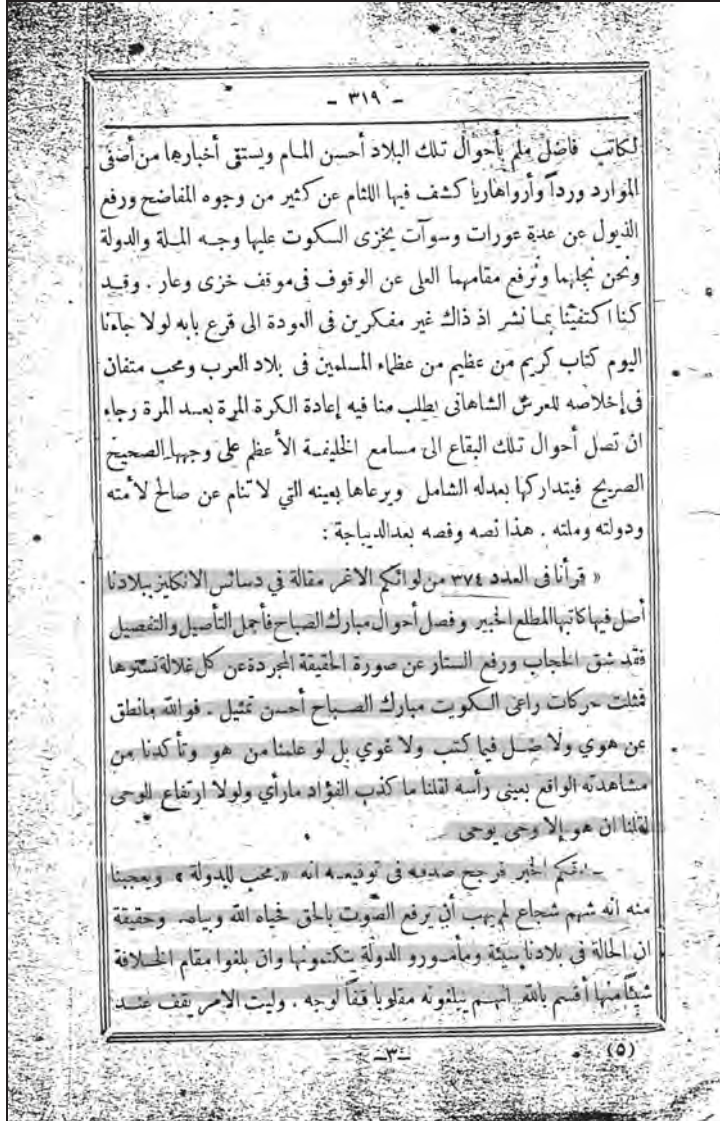 - ٣١٩ -
لكاتب فاضل ملم بأحوال تلك البلاد أحسن المام ويستقى أخبارها من أصفى
الموارد ورداً وأرواها ريا كشف فيها اللثام عن كثير من وجوه المفاضح ورفع
الذيول عن عدة عورات وسوآت يخزى السكوت عليها وجه الملة والدولة
ونحن نجلهما ونرفع مقامهما العلى عن الوقوف فى موقف خزى وعار . وقد
كنا اكتفينا بما نشر اذ ذاك غير مفكرين فى العودة الى قرع بابه لولا جاءنا
اليوم كتاب كريم من عظيم من عظماء المسلمين فى بلاد العرب ومحب متفان
فى إخلاصه للعرش الشاهانى يطلب منا فيه إعادة الكرة المرة بعد المرة رجاء
ان تصل أحوال تلك البقاع الى مسامع الخليفة الأعظم على وجهها الصحيح
الصريح فيتداركها بعدله الشامل ويرعاها بعينه التي لا تنام عن صالح لأمته
ودولته وملته . هذا نصه وفصه بعد الديباجة :
« قرأنا فى العدد ٣٧٤ من لوائكم الاغر مقالة في دسائس الانكليز ببلادنا
أصل فيها كاتبها المطلع الخبير وفصل أحوال مبارك الصباح فأجمل التأصيل والتفصيل
فقد شق الحجاب ورفع الستار عن صورة الحقيقة المجردة عن كل غلالة تستوها
فمثلت حركات راعى الكويت مبارك الصباح أحسن تمثيل . فوالله مانطق
عن هوي ولا ضل فيما كتب ولا غوي بل لو علمنا من هو وتأكدنا من
مشاهدته الواقع بعينى رأسه لقلنا ما كذب الفؤاد مارأي ولولا ارتفاع الوحى
لقلنا ان هو إلا وحى يوحى
الخبر فرجح صدقه فى توقيعه انه « محب للدولة » ويعجبنا
منه انه شهم شجاع لم يهب أن يرفع الصوت بالحق فحياه الله وبياه . وحقيقة
ان الحالة فى بلادنا سيئة ومأمورو الدولة يتكتمونها وان بلغوا مقام الخلافة
شيئاً منها أقسم بالله انهم يبلغونه مقلوبا قفاً لوجه . وليت الامر يقف عند
(٥)
-٣-